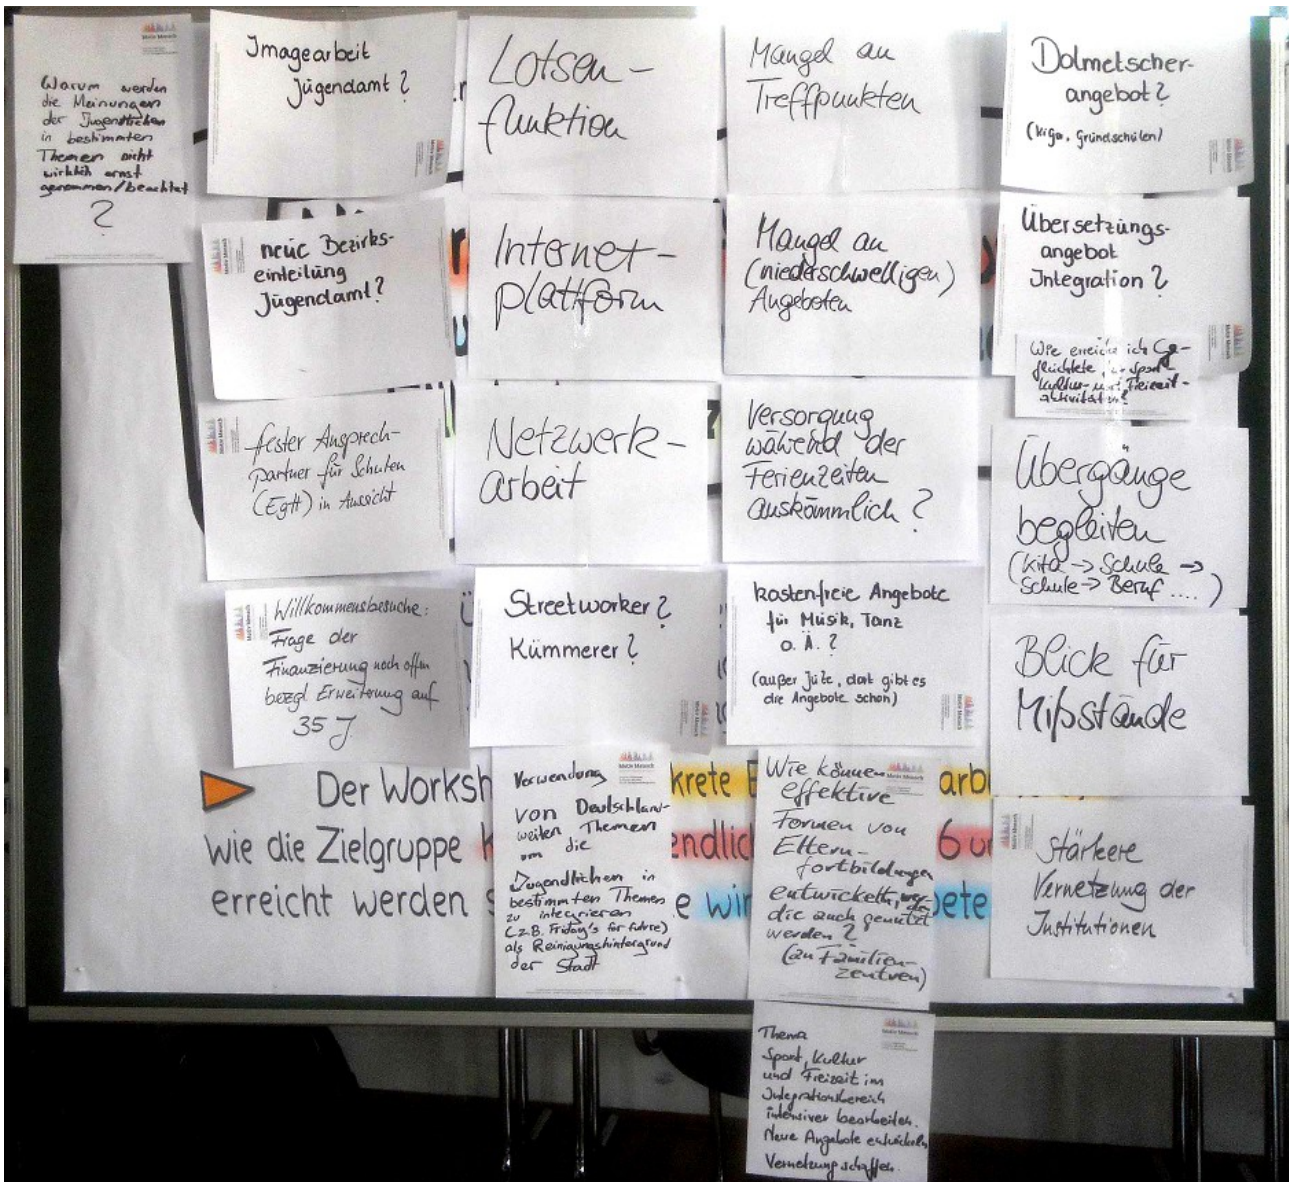 Warum werden
die Meinungen
der Jugendlichen
in bestimmten
Themen nicht
wirklich ernst
genommen/beachtet
?
Imagearbeit
Jugendamt?
neue Bezirks-
einteilung
Jugendamt?
fester Ansprech-
partner für Schulen
(EgH) in Aussicht
Willkommensbesuche:
Frage der
Finanzierung noch offen
bezgl Erweiterung auf
35 J.
Lotsen-
funktion
Internet-
plattform
Netzwerk-
arbeit
Streetworker?
Kümmerer?
Verwendung
von Deutschland-
weiten Themen
um die
Jugendlichen in
bestimmten Themen
zu integrieren
(z.B. Friday's for future)
als Reinigungshintergrund
der Stadt
Mangel an
Treffpunkten
Mangel an
(niederschwelligen)
Angeboten
Versorgung
während der
Ferienzeiten
auskömmlich?
kostenfreie Angebote
für Musik, Tanz
o. Ä.?
(außer JuZe, dort gibt es
die Angebote schon)
Wie können
effektive
Formen von
Eltern-
fortbildungen
entwickelt,
die auch genutzt
werden?
(an Familien-
zentren)
Thema
Sport, Kultur
und Freizeit im
Integrationsbereich
intensiver bearbeiten.
Neue Angebote entwickeln
Vernetzung schaffen.
Dolmetscher-
angebot?
(Kiga, Grundschulen)
Übersetzungs-
angebot
Integration?
Wie erreiche ich Ge-
flüchtete Sport-
Kultur- und Freizeit-
aktivitäten?
Übergänge
begleiten
(Kita → Schule →
Schule → Beruf ....)
Blick für
Mißstände
stärkere
Vernetzung der
Institutionen
Der Worksh
krete
arb
wie die Zielgruppe
endlic
6 u
erreicht werden
e wi
bete